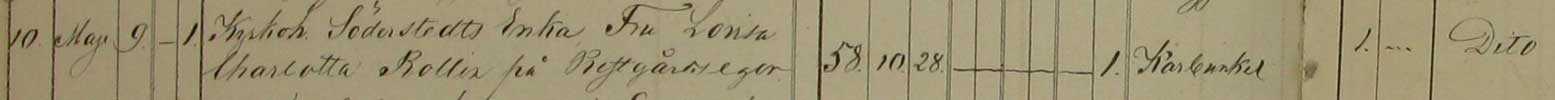 10. Maji 9. – 1. Kyrkoh. Söderstedts Enka, Fru Lovisa
Charlotta Rollin på 58. 10. 28. 1. Karbunkel 1. ... Dito